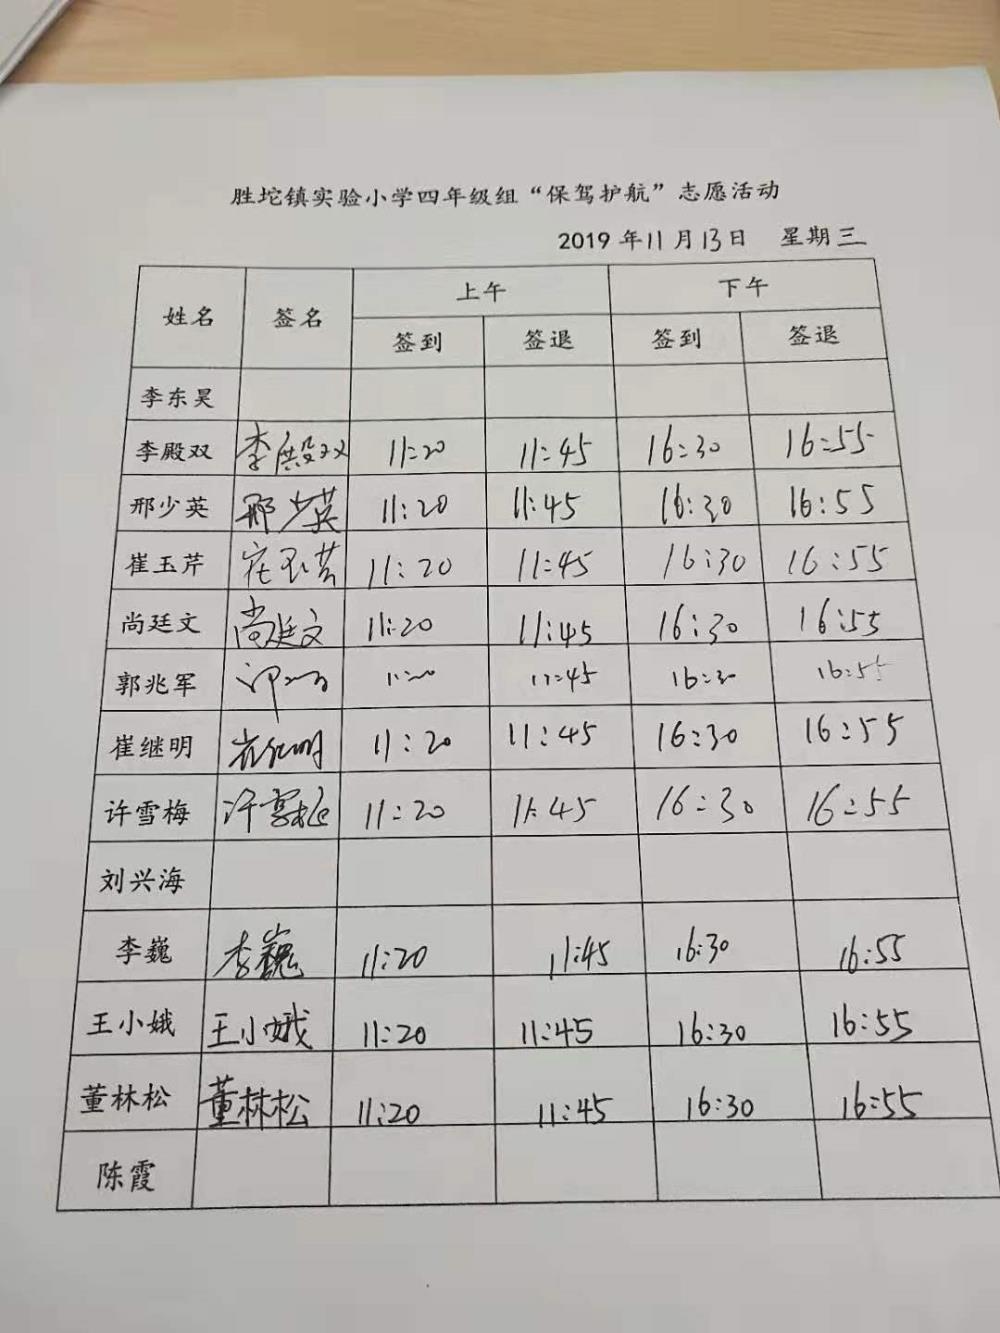 胜坨镇实验小学四年级组“保驾护航”志愿活动
2019 年11月13日 星期三
姓名 签名 上午 下午
签到 签退 签到 签退
李东昊
李殿双 李殿双 11:20 11:45 16:30 16:55
邢少英 邢少英 11:20 11:45 16:30 16:55
崔玉芹 崔玉芹 11:20 11:45 16:30 16:55
尚廷文 尚廷文 11:20 11:45 16:30 16:55
郭兆军 11:20 11:45 16:30 16:55
崔继明 崔继明 11:20 11:45 16:30 16:55
许雪梅 许雪梅 11:20 11:45 16:30 16:55
刘兴海
李巍 李巍 11:20 11:45 16:30 16:55
王小娥 王小娥 11:20 11:45 16:30 16:55
董林松 董林松 11:20 11:45 16:30 16:55
陈霞